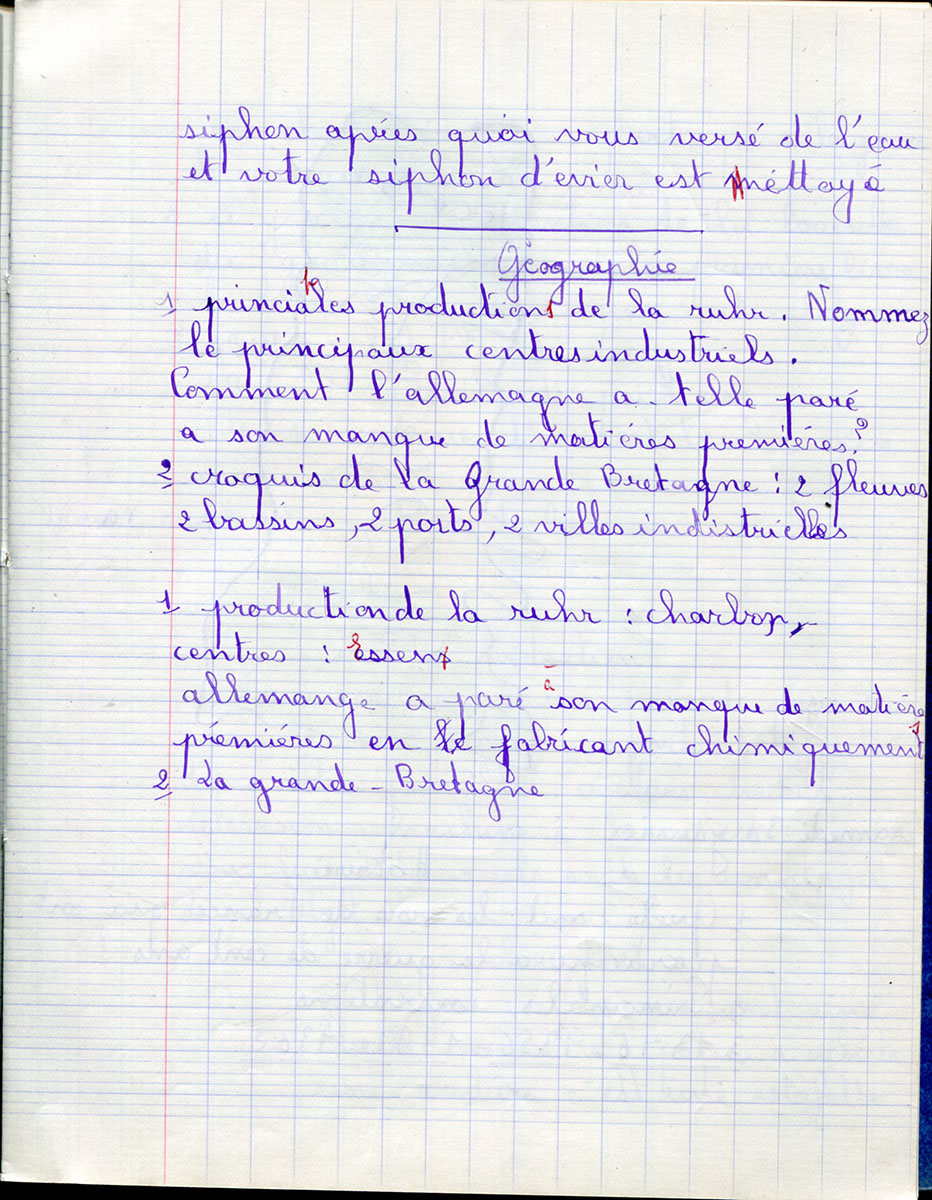 siphon apées quoi vous versé de l'eau
et votre siphon d'évier est néttoyé
Géographie
1 princiales productions de la ruhr. Nommez
lé principaux centres industriels.
Comment l'allemagne a-telle paré
a son manque de matiéres premiéres?
2 croquis de la Grande Bretagne : 2 fleuves
2 bassins, 2 ports, 2 villes indistrielles
1 production de la ruhr : charbon,
centres : Essen
allemange a paré à son manque de matière
prémiéres en le fabricant chimiquement
2 La grande-Bretagne